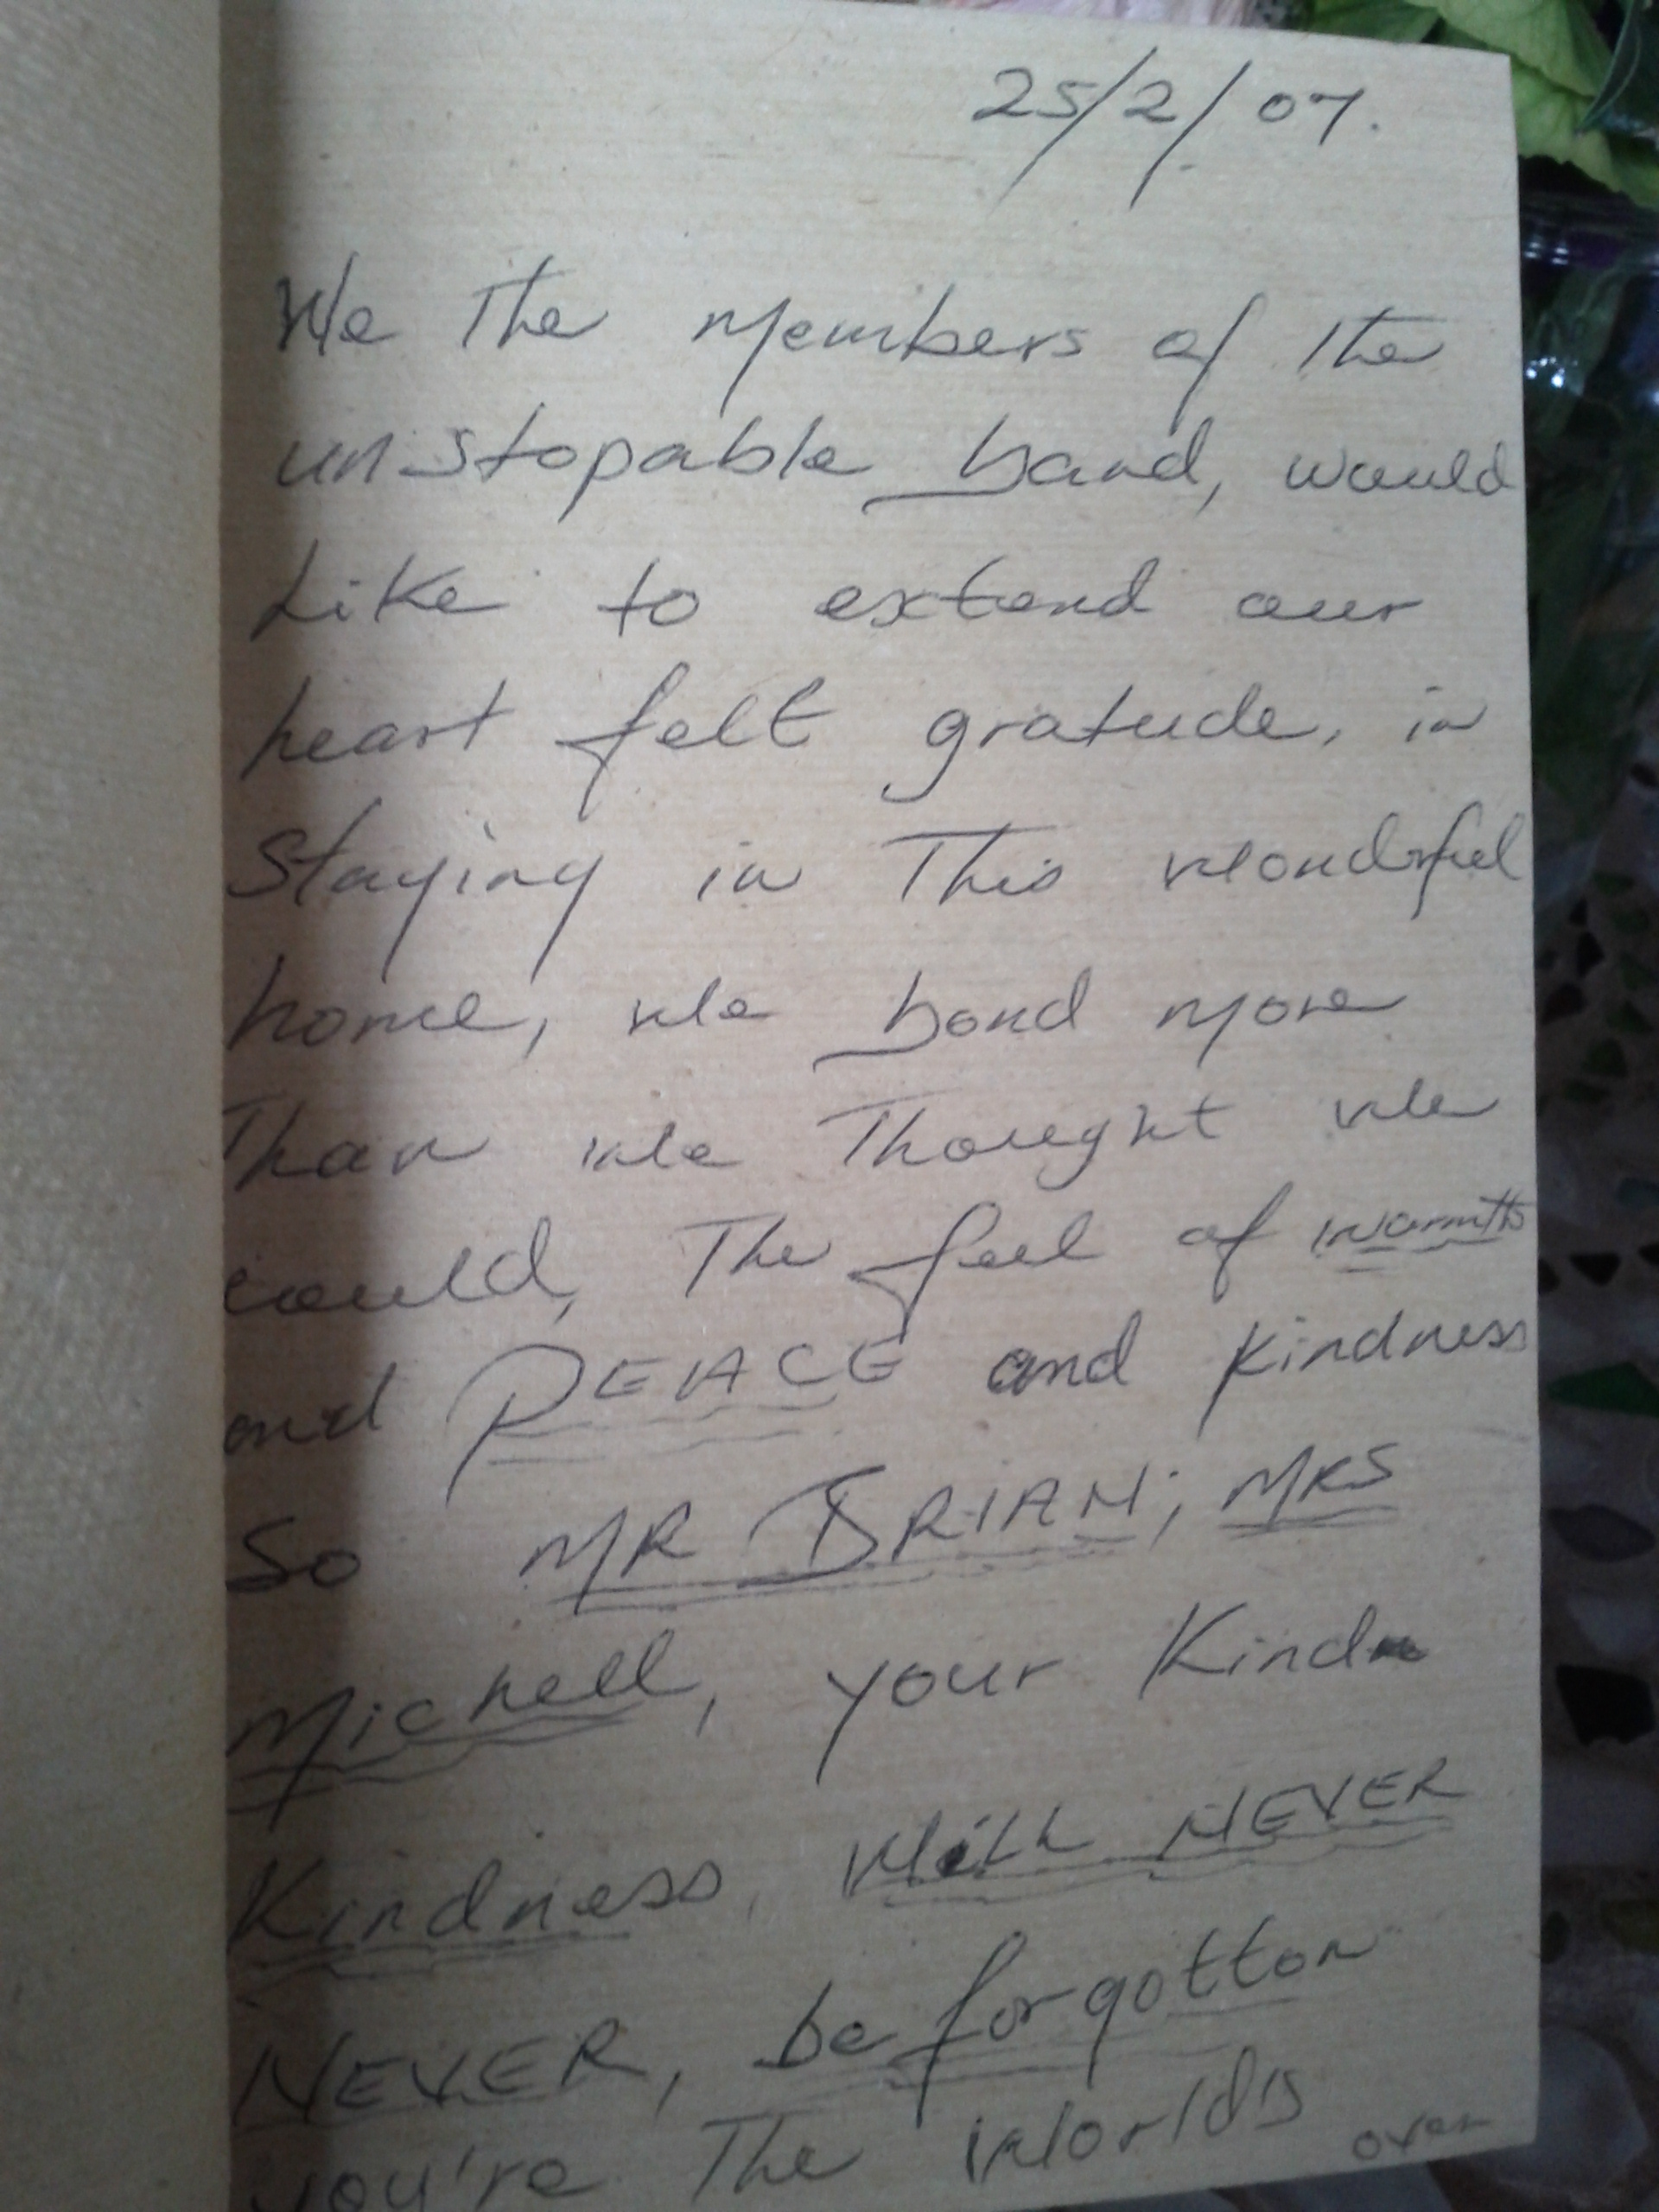 25/2/07.
We The Members of the
unstopable band, would
Like to extend our
heart felt gratude, in
Staying in This wondrful
home, we bond more
Than we Thought we
could, The feel of warmth
and PEACE and kindness
So MR BRIAN, MRS
Michell, your Kindn
Kindness, WiLL NEVER
NEVER, be forgotton
you're The World's
over